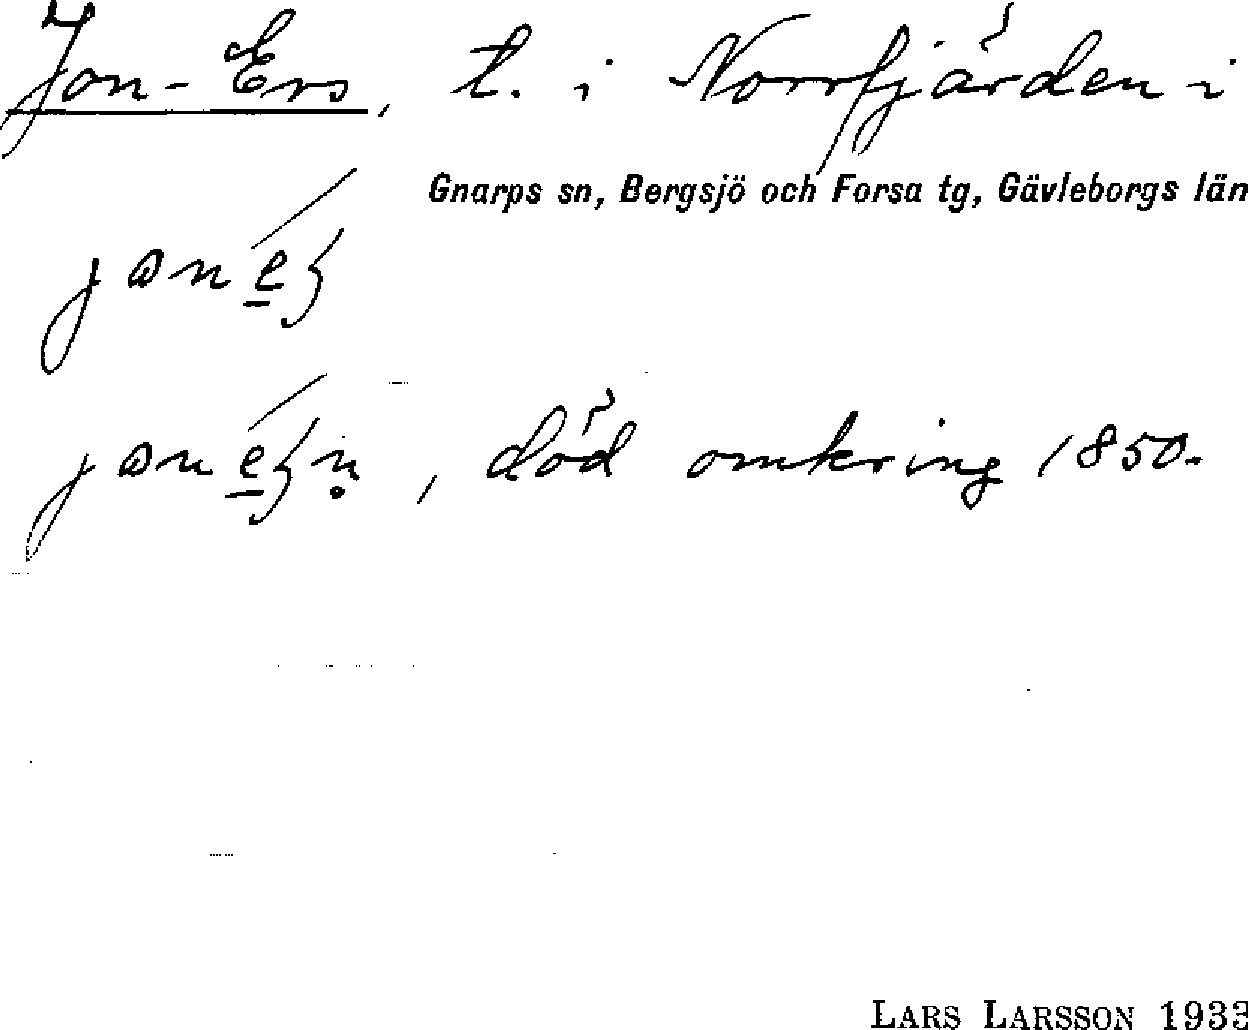 Jon-Ers, t. i Norrfjärden i
Gnarps sn, Bergsjö och Forsa tg, Gävleborgs län
, död omkring 1850.
LARS LARSSON 1933